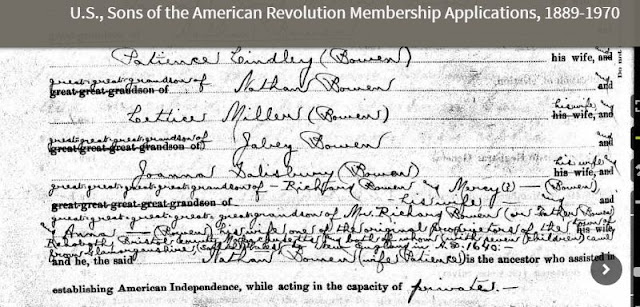 U.S., Sons of the American Revolution Membership Applications, 1889-1970
Patience Lindley (Bowen) his wife, and
great-great-grandson of Nathan Bowen and
great-great-grandson of
Lettice Miller (Bowen) his wife, and
great-great-great-grandson of Jabez Bowen and
great-great-great-grandson of
Joanna Salisbury (Bowen) his wife, and
great-great-great-great-grandson of – Richard Bowen & Mercy (?) – (Bowen),
great-great-great-great-grandson of his wife and
great-great-great-great-great-grandson of Mr. Richard Bowen (or Father Bowen)
& Anna — (Bowen) his wife one of the original proprietors of the town of his wife,
Rehoboth Bristol County Massachusetts and both of whom with seven (children) came
from Glamorganshire, to New England in A.D. 1640.
and he, the said Nathan Bowen (wife Patience) is the ancestor who assisted in
establishing American Independence, while acting in the capacity of private –